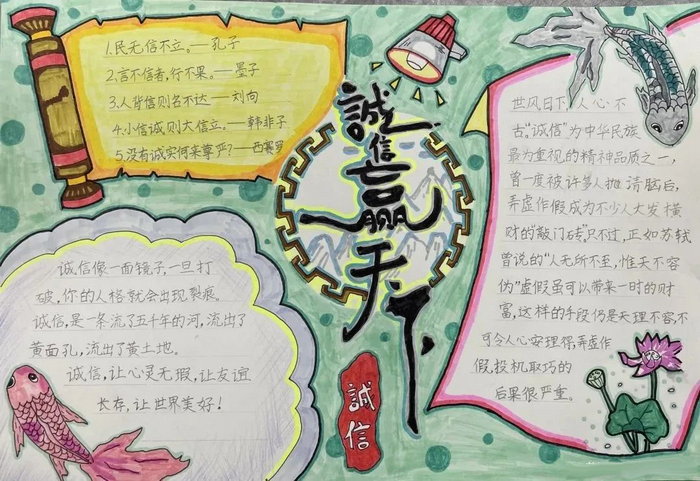 1.民无信不立。——孔子
2.言不信者，行不果。——墨子
3.人背信则名不达——刘向
4.小信诚则大信立。——韩非子
5.没有诚实何来尊严？——西塞罗
誠信赢天下
世风日下，人心不
古。“诚信”为中华民族
最为重视的精神品质之一，
曾一度被许多人抛清脑后，
弄虚作假成为不少人大发横
财的“敲门砖”只不过，正如苏轼
曾说的“人无所不至，惟天不容
伪”虚假虽可以带来一时的财
富，这样的手段仍是天理不容，不
可令人心安理得，弄虚作
假，投机取巧的
后果很严重。
诚信像一面镜子，一旦打
破，你的人格就会出现裂痕。
诚信，是一条流了五千年的河，流出了
黄面孔，流出了黄土地。
诚信，让心灵无瑕，让友谊
长存，让世界美好！
誠信